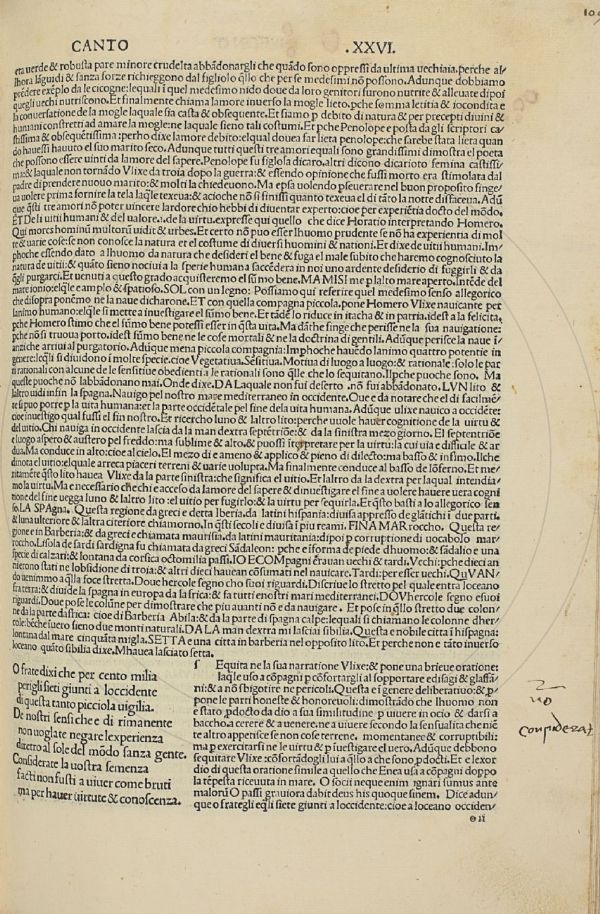 109
CANTO .XXVI.
eta uerde & robusta pare minore crudelta abbãdonargli che quãdo sono oppressi da ultima uechiaia. perche al
lhora lãguidi & sanza forze richieggono dal figliolo q̃llo che per se medesimi nõ possono. Adunque dobbiamo
prẽdere exẽplo da le cicogne: lequali i quel medesimo nido doue da loro genitori furono nutrite & alleuate dipoi
quegli uechi nutriscono. Et finalmente chiama lamore inuerso la mogle lieto. pche somma letitia & iocondita e
la conuersatione de la mogle laquale sia casta & obsequente. Et siamo p debito di natura & per precepti diuini &
humani constretti ad amare la mogle: ne laquale sieno tali costumi. Et pche Penolope e posta da gli scriptori ca
stissima & obsequẽtissima: perho dixe lamore debito: elqual douea far lieta penolope: che sarebe stata lieta quan
do hauessi hauuto el suo marito seco. Adunque tutti questi tre amori equali sono grandissimi dimostra el poeta
che possono essere uinti da lamore del sapere. Penolope fu figlola dicaro. altri dicono dicarioto femina castissi
ma: & laquale non tornãdo Vlixe da troia dopo la guerra: & essendo opinione che fussi morto era stimolata dal
padre di prendere nuouo marito: & molti la chiedeuono. Ma epsa uolendo pseuerare nel buon proposito singe/
ua uolere prima fornire la tela laq̃le texeua: & acioche nõ si finissi quanto texeua el di tãto la notte disfaceua. Adũ
que q̃sti tre amori nõ poter uincere lardore chio hebbi di diuentar experto: cioe per experiẽtia docto del mõdo.
ET De li uitii humani & del ualore. i. de la uirtu. expresse qui quello che dice Horatio interpretando Homero.
Qui mores hominũ multorũ uidit & urbes. Et certo nõ puo esser lhuomo prudente se nõ ha experientia di mol
te & uarie cose: se non conosce la natura et el costume di diuersi huomini & nationi. Et dixe de uitii humani. Im/
phoche essendo dato a lhuomo da natura che desideri el bene & fuga el male subito che haremo cognosciuto la
natura de uitii: & quãto sieno nociui a la sperie humana succẽdera in noi uno ardente desiderio di fuggirli & da
q̃gli purgarci. Et uenuti a questo grado acquisteremo el sũmo bene. MA MISI me p lalto mare aperto. Intẽde del
mare ionio: elq̃le e amplo & spatioso. SOL con un legno: Possiamo qui referire quel medesimo senso allegorico
che disopra ponemo ne la naue dicharone. ET con quella compagna piccola. pone Homero Vlixe nauicante per
lanimo humano: elq̃le si mette a inuestigare el sũmo bene. Et tãdẽ lo riduce in itacha & in patria. idest a la felicita.
pche Homero stimo che el sũmo bene potessi esser in q̃sta uita. Ma dãthe finge che perisse ne la sua nauigatione:
pche nõ si truoua porto. idest sũmo bene ne le cose mortali & ne la doctrina di gentili. Adũque perisce la naue i/
anzi che arriui al purgatorio. Adunque mena piccola compagnia: Imphoche hauẽdo lanimo quattro potentie in
genere: lequali si diuidono i molte specie. cioe Vegetatiua. Sẽsitiua. Motiua di luogo a luogo: & rationale: solo le par
ti rationali con alcune de le sensitiue obedienti a le rationali sono q̃lle che lo sequitano. Ilpche puoche sono. Ma
queste puoche nõ labbãdonano mai. Onde dixe. DA Laquale non fui deserto. nõ fui abbãdonato. LVN lito &
laltro uidi infin la spagna. Nauigo pel nostro mare mediterraneo in occidente. Oue e da notare che el di facilmẽ
te si puo porre p la uita humana: et la parte occidẽtale pel fine de la uita humana. Adũque ulixe nauico a occidẽte:
cioe inuestigo qual fussi el fin nostro. Et ricercho luno & laltro lito: perche uuole hauer cognitione de la uirtu &
del uitio. Chi nauiga in occidente lascia da la man dextra septẽtriõe: & da la sinistra mezo giorno. El septentriõe
e luogo aspero & austero pel freddo: ma sublime & alto. & puossi iterpretare per la uirtu: la cui uia e difficile & ar
dua. Ma conduce in alto: cioe al cielo. El mezo di e ameno & applico & pieno di dilecto: ma basso & infimo. Ilche
dinota el uitio: elquale arreca piaceri terreni & uarie uolupta. Ma finalmente conduce al basso de lõferno. Et me/
ritamẽte q̃sto lito hauea Vlixe da la parte sinistra: che significa el uitio. Et laltro da la dextra per laqual intendia/
mo la uirtu. Ma e necessario che chi e acceso da lamore del sapere & dinuestigare el fine a uolere hauere uera cogni
tione del fine uegga luno & laltro lito: el uitio per fugirlo: & la uirtu per seguirla. Et q̃sto basti a lo allegorico sen
so. LA SPAgna. Questa regione da greci e detta Iberia. da latini hispania: diuisa appresso de glãtichi i due parti.
& luna ulteriore & laltra citeriore chiamorno. In q̃sti secoli e diuisa i piu reami. FIN A MARroccho. Questa re/
gione e in Barberia: & da greci e chiamata maurisia. da latini mauritania: dipoi p corruptione di uocabolo mar/
roccho. Lisola de sardi sardigna fu chiamata da greci Sãdaleon: pche e i forma de piede dhuomo: & sãdalio e una
specie di calzari: & lontana da corsica octo milia passi. IO E COMpagni erauan uechi & tardi. Vechi: pche dieci an
ni erono stati ne lobsidione di troia: & altri dieci haueano cõsumati nel nauicare. Tardi: per esser uechi. QuVAN/
do uenimmo a q̃lla foce stretta. Doue hercole segno cho suoi riguardi. Discriue lo stretto pel quale entra loceano
fra terra: & diuide la spagna in europa da la frica: & fa tutti e nostri mari mediterranei. DOVhercole segno e suoi
riguardi. Doue pose le colũne per dimostrare che piu auanti nõ e da nauigare. Et pose in q̃llo stretto due colon/
ne da la parte dastrica: cioe di Barberia Abila: & da la parte di spagna calpe: lequali si chiamano le colonne dher/
cole: béche fuero sieno due monti naturali. DA LA man dextra mi lasciai sibilia. Questa e nobile citta i hispagna:
lontana dal mare cinquãta migla. SETTA e una citta in barberia nel opposito lito. Et perche non e tãto inuerso
loceano quãto sibilia dixe. Mhauea lasciato setta.
O frate dixi che per cento milia
perigli sieti giunti a loccidente
di questa tanto piccola uigilia.
De nostri sensi che e di rimanente
non uoglate negare lexperienza
diretro al sole del mõdo sanza gente.
Considerate la uostra semenza
facti non fusti a uiuer come bruti
ma per hauer uirtute & conoscenza.
s Equita ne la sua narratione Vlixe: & pone una brieue oratione:
laq̃le uso a cõpagni p cõfortargli al sopportare edisagi & glassa/
ni: & a nõ sbigotire ne pericoli. Questa e i genere deliberatiuo: & p
pone le parti honeste & honoreuoli: dimostrãdo che lhuomo non
e stato pdocto da dio a sua similitudine p uiuere in ocio & darsi a
baccho a cerere & a uenere. ne a uiuer secondo la sensualita che niẽ
te altro apperisce se non cose terrene. momentanee & corruptibili:
ma p exercitarsi ne le uirtu & p iuestigare el uero. Adunque debbono
sequitare Vlixe: cõfortãdogli lui a q̃llo a che sono pdocti. Et e lexor
dio di questa oratione simile a quello che Enea usa a cõpagni doppo
la tẽpesta riceuuta in mare. O socii neque enim ignari sumus ante
malorũ O passi grauiora dabit deus his quoque finem. Dice adun/
que o frategli eq̃li siete giunti a loccidente: cioe a loceano occiden/
no
considerat
o ii